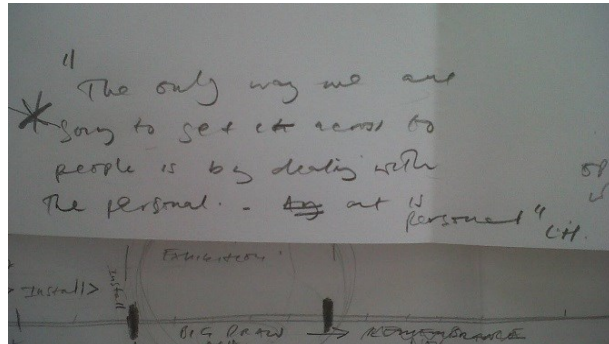 "The only way we are
going to get it across to
people is by dealing with
the personal. - art is
personal" L.H.
EXHIBITION.
Install>
Install
BIG DRAW → REMEMBRANCE